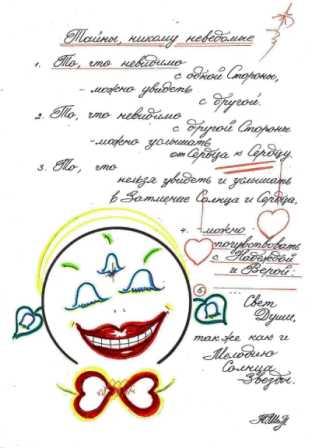 Тайны, никому неведомые
1. То, что невидимо
с одной Стороны,
- можно увидеть
с другой.
2. То, что невидимо
с другой Стороны
- можно услышать
от Сердца к Сердцу.
3. То, что
нельзя увидеть и услышать
в Затмение Солнца и Сердца,
4. - можно
почувствовать
с Надеждой
и Верой:
5 ...
Свет
Души,
так же как и
Мелодию
Солнца -
Звезды.